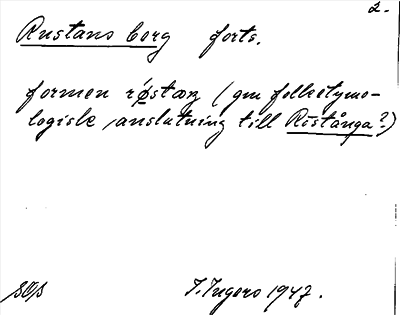 2.
Rustans berg forts.
formen røstaŋ (gm folketymo-
logisk anslutning till Röstånga?)
I. Ingers 1947.